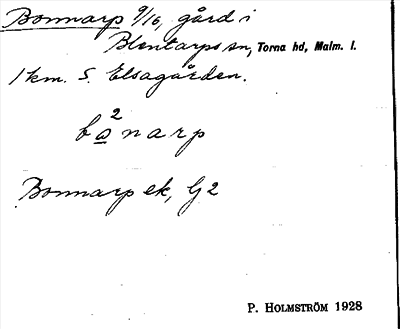 Bonnarp 9/16, gård i
Blentarps sn, Torna hd, Malm. l.
1 km. S. Elsagården.
bo²narp
Bonnarp ek, G2
P. HOLMSTRÖM 1928